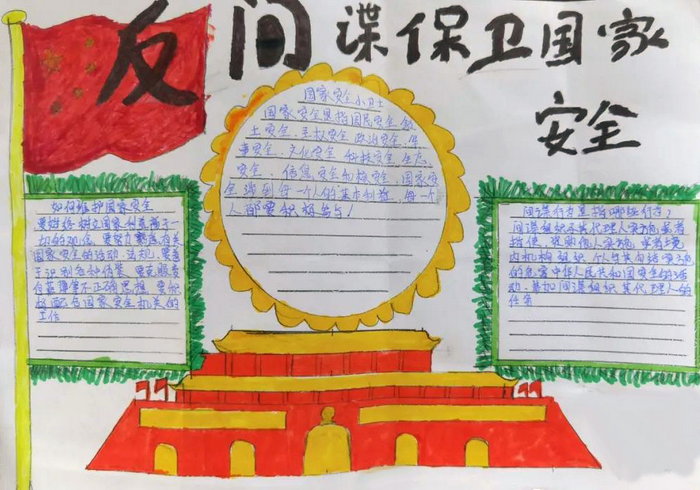 反间谍保卫国家
安全
国家安全小卫士
国家安全是指国民安全、领
土安全、主权安全、政治安全、军
事安全、文化安全、科技安全、生态
安全、信息安全和核安全，国家安
全涉到每一个人的基本利益，每一个
人都要积极参与！
如何维护国家安全
要始终树立国家利益高于一
切的观念，要努力熟悉有关
国家安全的法动、法规，要善
于识别各种伪装，要克服妄
自菲薄等不正确思想，要积
极配合国家安全机关的
工作
间谍行为是指哪些行为？
间谍组织及其代理人实施或者
指使、资助他人实施，或者境
内机构组织、个人与其勾结实施
的危害中华人民共和国安全的活
动，参加间谍组织其代理人的
任务